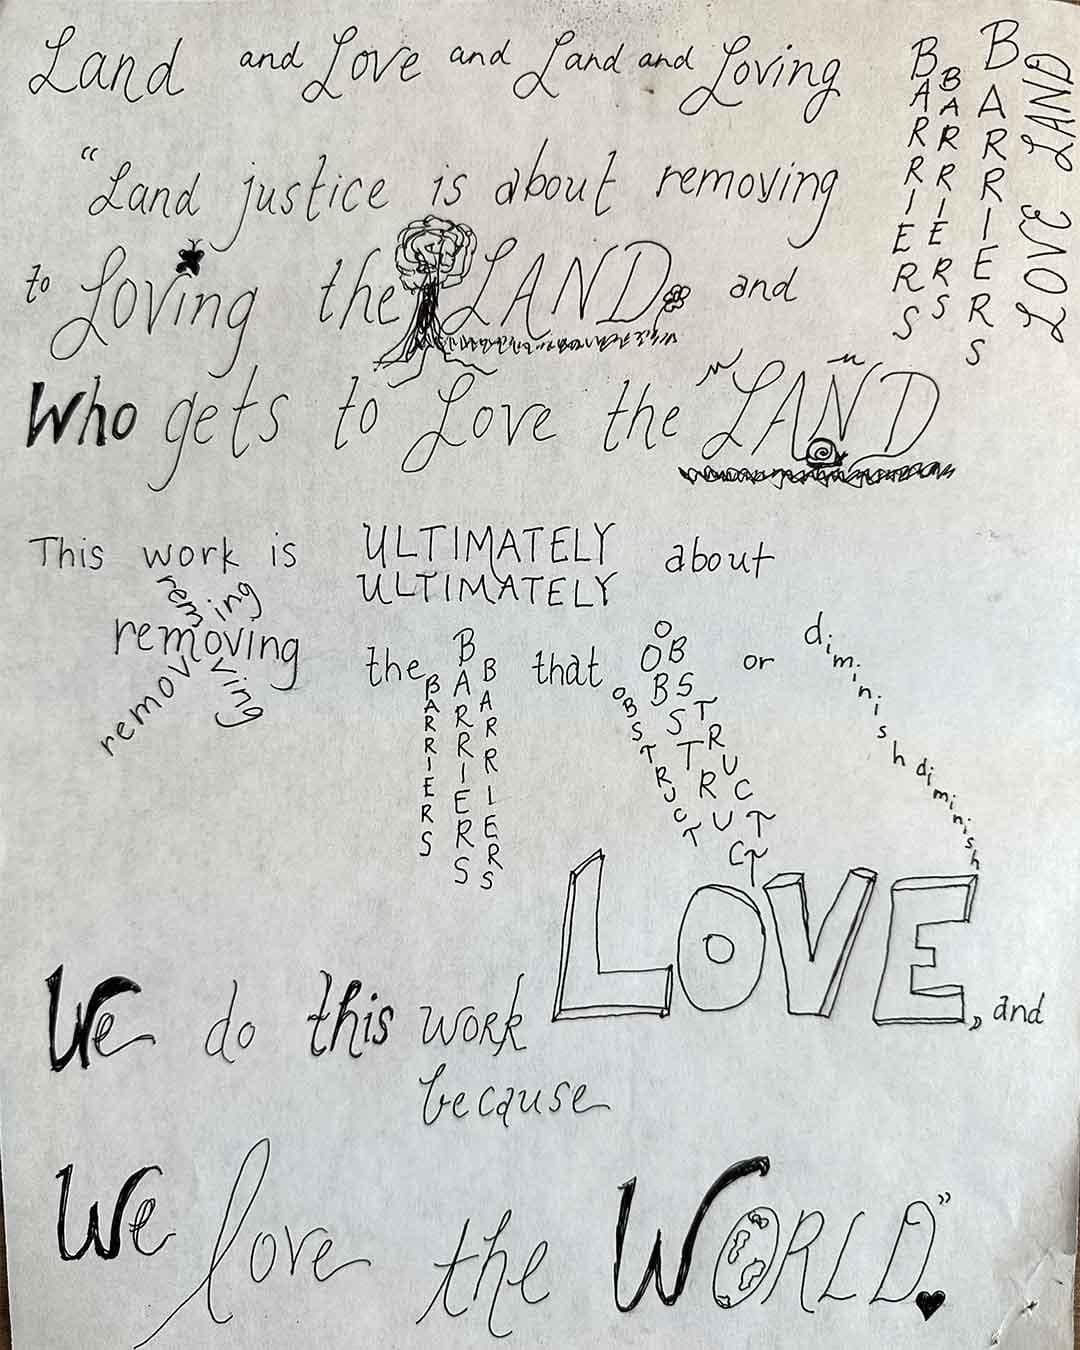 Land and Love and Land and Loving
"Land justice is about removing
BARRIERS
BARRIERS
BARRIERS
LOVE LAND
to Loving the LAND and
Who gets to Love the LAND
This work is ULTIMATELY about
ULTIMATELY
rem ing
removing
remov ving
the BARRIERS
BARRIERS
BARRIERS
that OBSTRUCT
OBSTRUCT
OBSTRUCT
or diminish diminish
LOVE, and
We do this work
because
We love the WORLD."